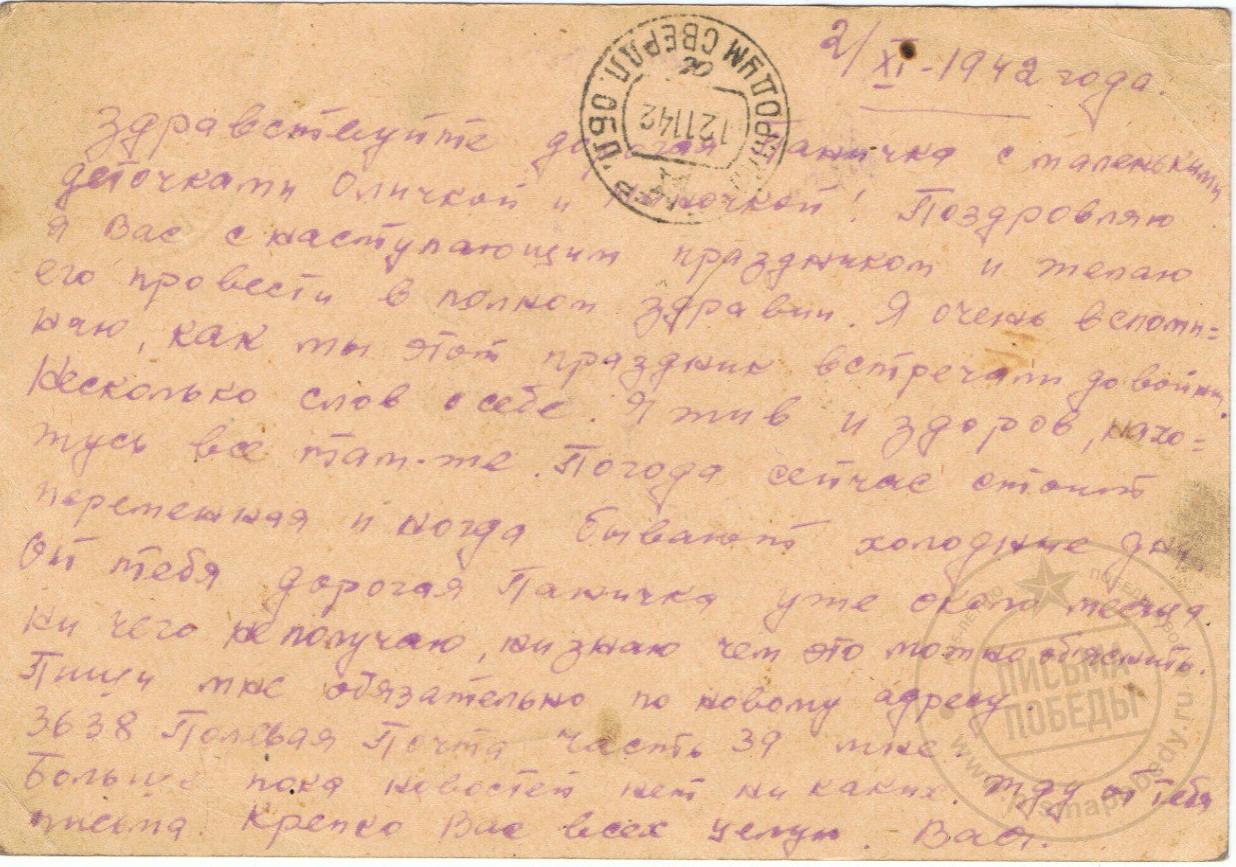 2/XI-1942 года.
Здравствуйте дорогая Паничка с маленькими
деточками Оличкой и Ниночкой! Поздровляю
я Вас с наступающим праздником и желаю
его провести в полном здравии. Я очень вспоми=
наю, как мы этот праздник встречали до войны.
Несколько слов о себе. Я жив и здоров, нахо=
жусь все там-же. Погода сейчас стоит
переменная и ногда бывают холодные дни.
От тебя дорогая Паничка уже около месяца
ни чего не получаю, ни знаю чем это можно объяснить.
Пиши мне обязательно по новому адресу.
3638 Полевая Почта часть 39 мне.
Больше пока новостей нет ни каких. Жду от тебя
письма. Крепко Вас всех целую. Вас.
СВЕРДЛ. ОБ
121142
ПИСЬМА
ПОБЕДЫ
www.pismapobedy.ru